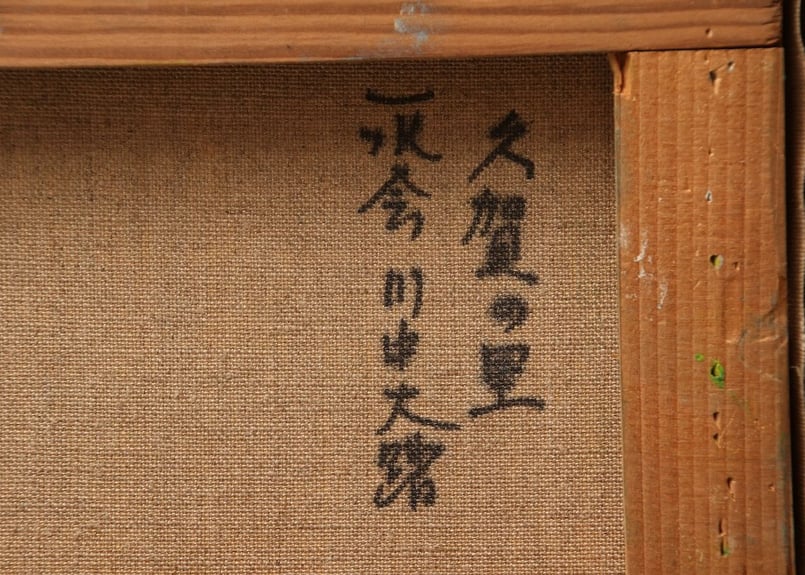 久賀の里
一水会 川中大路